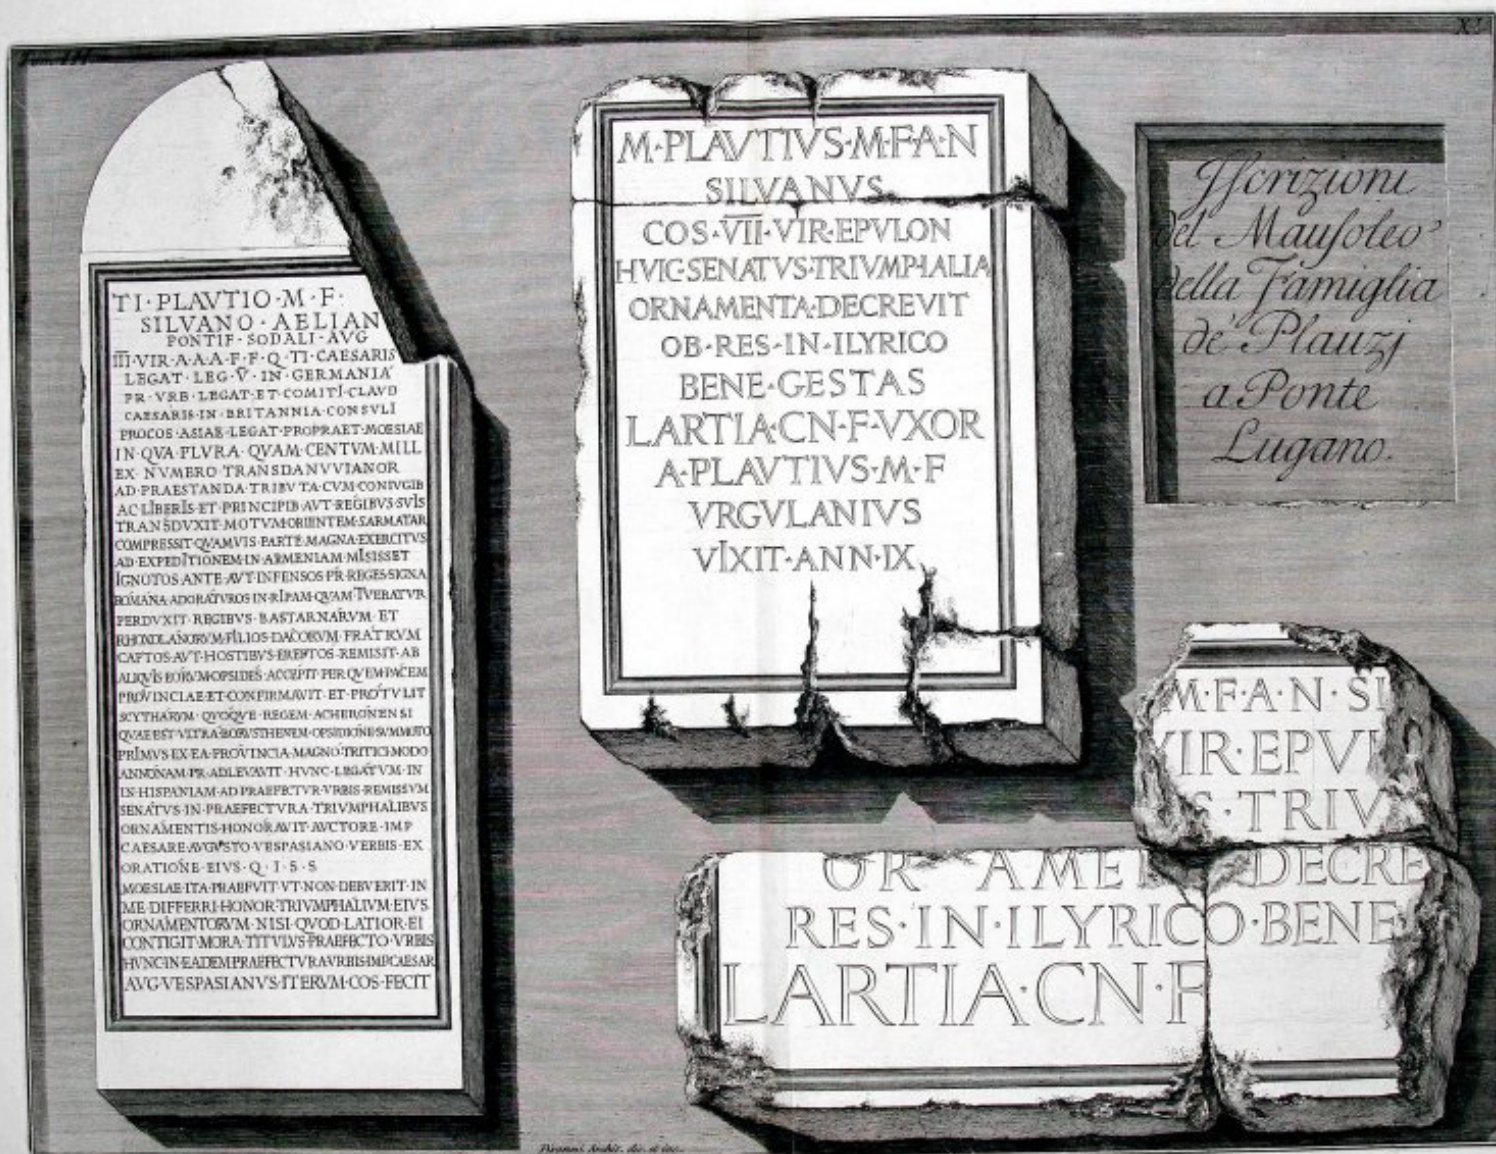 Tom. III
XI
TI·PLAVTIO·M·F·
SILVANO·AELIAN
PONTIF·SODALI·AVG
III·VIR·A·A·A·F·F·Q·TI·CAESARIS
LEGAT·LEG·V·IN·GERMANIA
PR·VRB·LEGAT·ET·COMITI·CLAVD
CAESARIS·IN·BRITANNIA·CONSVLI
PROCOS·ASIAE·LEGAT·PROPRAET·MOESIAE
IN·QVA·PLVRA·QVAM·CENTVM·MILL
EX·NVMERO·TRANSDANVVIANOR
AD·PRAESTANDA·TRIBVTA·CVM·CONIVGIB
AC·LIBERIS·ET·PRINCIPIB·AVT·REGIBVS·SVIS
TRANSDVXIT·MOTVM·ORIENTEM·SARMATAR
COMPRESSIT·QVAMVIS·PARTE·MAGNA·EXERCITVS
AD·EXPEDITIONEM·IN·ARMENIAM·MISISSET
IGNOTOS·ANTE·AVT·INFENSOS·PR·REGES·SIGNA
ROMANA·ADORATVROS·IN·RIPAM·QVAM·TVEBATVR
PERDVXIT·REGIBVS·BASTARNARVM·ET
RHOXOLANORVM·FILIOS·DACORVM·FRATRVM
CAPTOS·AVT·HOSTIBVS·EREPTOS·REMISIT·AB
ALIQVIS·EORVM·OPSIDES·ACCEPIT·PER·QVEM·PACEM
PROVINCIAE·ET·CONFIRMAVIT·ET·PROTVLIT
SCYTHARVM·QVOQVE·REGEM·ACHERONENSI
QVAE·EST·VLTRA·BORVSTHENEM·OPSIDIONE·SVMMOTO
PRIMVS·EX·EA·PROVINCIA·MAGNO·TRITICI·MODO
ANNONAM·PR·ADLEVAVIT·HVNC·LEGATVM·IN
IN·HISPANIAM·AD·PRAEFECTVR·VRBIS·REMISSVM
SENATVS·IN·PRAEFECTVRA·TRIVMPHALIBVS
ORNAMENTIS·HONORAVIT·AVCTORE·IMP
CAESARE·AVGVSTO·VESPASIANO·VERBIS·EX
ORATIONE·EIVS·Q·I·S·S
MOESIAE·ITA·PRAEFVIT·VT·NON·DEBVERIT·IN
ME·DIFFERRI·HONOR·TRIVMPHALIVM·EIVS
ORNAMENTORVM·NISI·QVOD·LATIOR·EI
CONTIGIT·MORA·TITVLVS·PRAEFECTO·VRBIS
HVNC·IN·EADEM·PRAEFECTVRA·VRBIS·IMP·CAESAR
AVG·VESPASIANVS·ITERVM·COS·FECIT
M·PLAVTIVS·M·F·A·N
SILVANVS
COS·VII·VIR·EPVLON
HVIC·SENATVS·TRIVMPHALIA
ORNAMENTA·DECREVIT
OB·RES·IN·ILYRICO
BENE·GESTAS
LARTIA·CN·F·VXOR
A·PLAVTIVS·M·F
VRGVLANIVS
VIXIT·ANN·IX
Iscrizioni
del Mausoleo
della Famiglia
de' Plauzj
a Ponte
Lugano.
M·F·A·N·SI
VIR·EPVL
S·TRIV
OR AMEN DECRE
RES·IN·ILYRICO·BENE
LARTIA·CN·F
Piranesi Archit. dis. et inc.